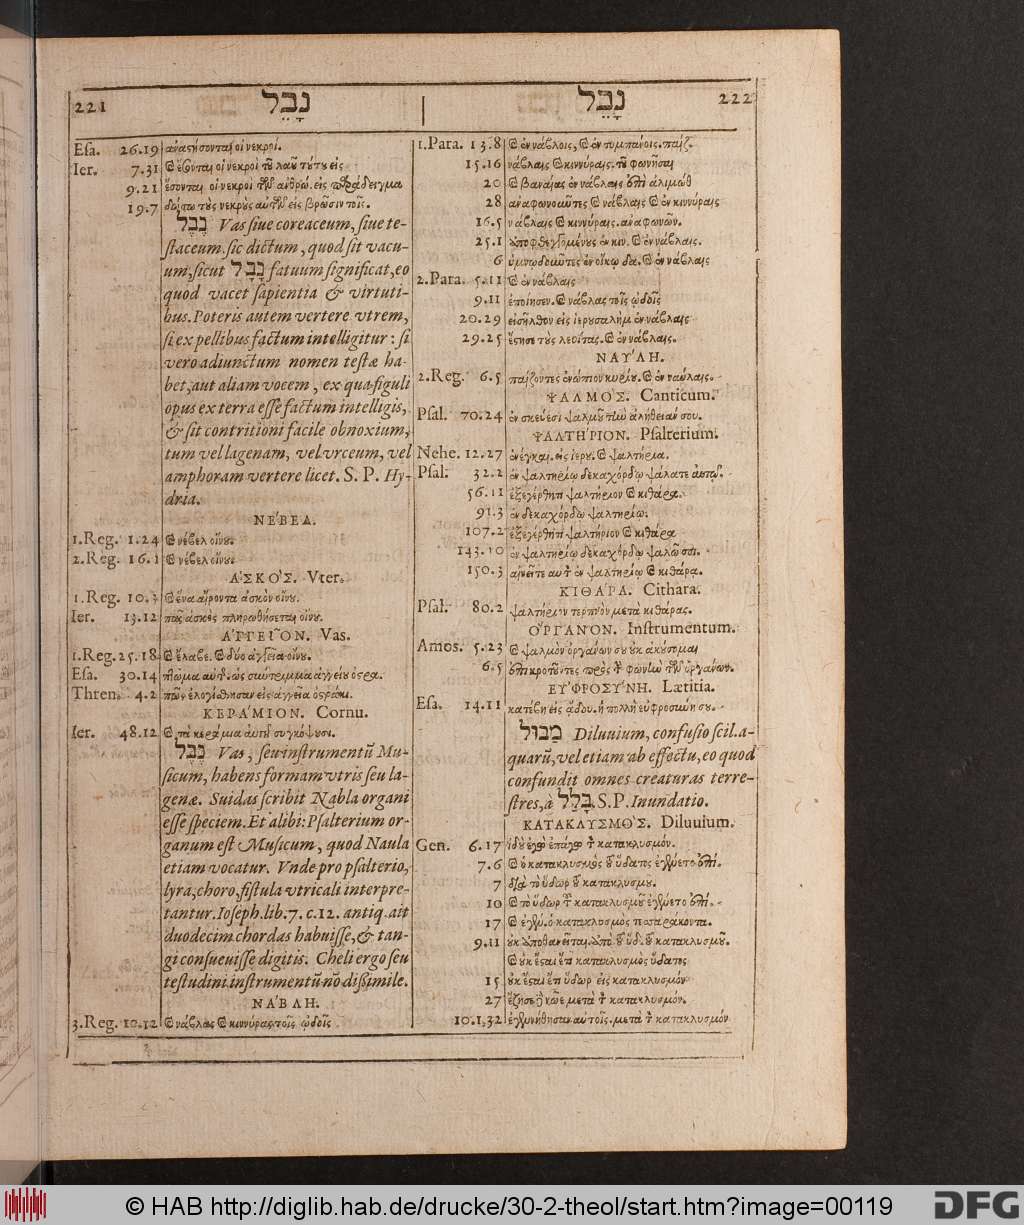 221 נָבֵל
Esa. 26.19 ἀναστήσονται οἱ νεκροί.
Ier. 7.31 & ἔσονται οἱ νεκροὶ τοῦ λαοῦ τούτου εἰς
9.21 ἔσονται οἱ νεκροὶ τῶν ἀνθρώ. εἰς παράδειγμα
19.7 δώσω τοὺς νεκροὺς αὐτῶν εἰς βρῶσιν τοῖς.
נֵבֶל Vas siue coreaceum, siue te-
staceum. sic dictum, quod sit vacu-
um, sicut נָבָל fatuum significat, eo
quod vacet sapientia & virtuti-
bus. Poteris autem vertere vtrem,
si ex pellibus factum intelligitur: si
vero adiunctum nomen testæ ha-
bet, aut aliam vocem, ex qua figuli
opus ex terra esse factum intelligis,
& sit contritioni facile obnoxium,
tum vel lagenam, vel vrceum, vel
amphoram vertere licet. S. P. Hy-
dria.
ΝΕ´ΒΕΛ.
1.Reg. 1.24 & νέβελ οἴνου.
2.Reg. 16.1 & νέβελ οἴνου.
ἈΣΚΟ´Σ. Vter.
1.Reg. 10.3 & ἕνα αἴροντα ἀσκὸν οἴνου.
Ier. 13.12 πᾶς ἀσκὸς πληρωθήσεται οἴνου.
ἈΓΓΕΙ῀ΟΝ. Vas.
1.Reg. 25.18 & ἔλαβε. & δύο ἀγγεῖα οἴνου.
Esa. 30.14 πτῶμα αὐτ. ὡς σύντριμμα ἀγγείου ὀστρα.
Thren. 4.2 πῶς ἐλογίσθησαν εἰς ἀγγεῖα ὀστράκι.
ΚΕΡΑ´ΜΙΟΝ. Cornu.
Ier. 48.12 & τὰ κεράμια αὐτῆ συγκόψουσι.
נֵבֶל Vas, seu instrumentũ Mu-
sicum, habens formam vtris seu la-
genæ. Suidas scribit Nabla organi
esse speciem. Et alibi: Psalterium or-
ganum est Musicum, quod Naula
etiam vocatur. Vnde pro psalterio,
lyra, choro, fistula vtricali interpre-
tantur. Ioseph. lib. 7. c. 12. antiq. ait
duodecim chordas habuisse, & tan-
gi consueuisse digitis. Cheli ergo seu
testudini instrumentũ nõ dißimile.
ΝΑ´ΒΛΗ.
3.Reg. 10.12 & νάβλας & κιννύρας τοῖς ᾠδοῖς
נָבֵל 222
1.Para. 13.8 & ἐν νάβλοις, & ἐν τυμπάνοις. παίζ.
15.16 νάβλαις & κιννύραις. τοῦ φωνῆσαι
20 & βαναίας ἐν νάβλαις ἐπὶ ἀλιμώθ
28 ἀναφωνοῦντες & νάβλαις & ἐν κιννύραις
16.5 νάβλαις & κιννύραις. ἀναφωνῶν.
25.1 ἀποφθεγγομένους ἐν κιν. & ἐν νάβλαις.
6 ὑμνῳδοῦντες ἐν οἴκῳ δα. & ἐν νάβλαις
2.Para. 5.11 & ἐν νάβλαις
9.11 ἐποίησεν. & νάβλας τοῖς ᾠδοῖς
20.29 εἰσῆλθον εἰς ἱερουσαλὴμ ἐν νάβλαις
29.25 ἔστησε τοὺς λευίτας. & ἐν νάβλαις.
ΝΑΥ´ΛΗ.
2.Reg. 6.5 παίζοντες ἐνώπιον κυρίου. & ἐν ναύλαις.
ΨΑΛΜΟ´Σ. Canticum.
Psal. 70.24 ἐν σκεύεσι ψαλμοῦ τὴν ἀλήθειαν σου.
ΨΑΛΤΗ´ΡΙΟΝ. Psalterium.
Nehe. 12.27 ἐνέγκαι. εἰς ἱερου. & ψαλτήρια.
Psal. 32.2 ἐν ψαλτηρίῳ δεκαχόρδῳ ψάλατε αὐτῷ.
56.11 ἐξεγέρθητι ψαλτήριον & κιθάρα.
91.3 ἐν δεκαχόρδῳ ψαλτηρίῳ.
107.2 ἐξεγέρθητι ψαλτήριον & κιθάρα
143.10 ἐν ψαλτηρίῳ δεκαχόρδῳ ψαλῶ σοι.
150.3 αἰνεῖτε αὐτ ἐν ψαλτηρίῳ & κιθάρᾳ.
ΚΙΘΑ´ΡΑ. Cithara.
Psal. 80.2 ψαλτήριον τερπνὸν μετὰ κιθάρας.
ὌΡΓΑΝΟΝ. Instrumentum.
Amos. 5.23 & ψαλμὸν ὀργάνων σου οὐκ ἀκούσομαι
6.5 ἐπικροτοῦντες πρὸς τ φωνὴν τῶν ὀργάνων.
ΕΥ᾿ΦΡΟΣΥ´ΝΗ. Lætitia.
Esa. 14.11 κατέβη εἰς ᾅδου. ἡ πολλὴ εὐφροσύνη σου.
מַבּוּל Diluuium, confusio scil. a-
quarũ, vel etiam ab effectu, eo quod
confundit omnes creaturas terre-
stres, à בָּלַל. S.P. Inundatio.
ΚΑΤΑΚΛΥΣΜΟ´Σ. Diluuium.
Gen. 6.17 ἰδοὺ ἐγὼ ἐπάγω τ κατακλυσμόν.
7.6 & ὁ κατακλυσμὸς τοῦ ὕδατος ἐγένετο ἐπί.
7 διὰ τὸ ὕδωρ τοῦ κατακλυσμοῦ.
10 & τὸ ὕδωρ τ κατακλυσμοῦ ἐγένετο ἐπί.
17 & ἐγέν. ὁ κατακλυσμὸς τεσσαράκοντα.
9.11 οὐκ ἀποθανεῖται. ἀπὸ τοῦ ὕδ. τοῦ κατακλυσμοῦ.
& οὐκ ἔσται ἔτι κατακλυσμὸς ὕδατος
15 οὐκ ἔσται ἔτι ὕδωρ εἰς κατακλυσμὸν
27 ἔζησε νῶε μετὰ τ κατακλυσμόν.
10.1,32 ἐγεννήθησαν αὐτοῖς. μετὰ τ κατακλυσμόν
© HAB http://diglib.hab.de/drucke/30-2-theol/start.htm?image=00119
DFG